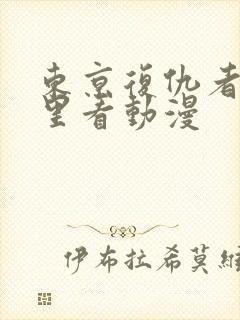 東京復仇者
里者動漫
伊布拉希莫維